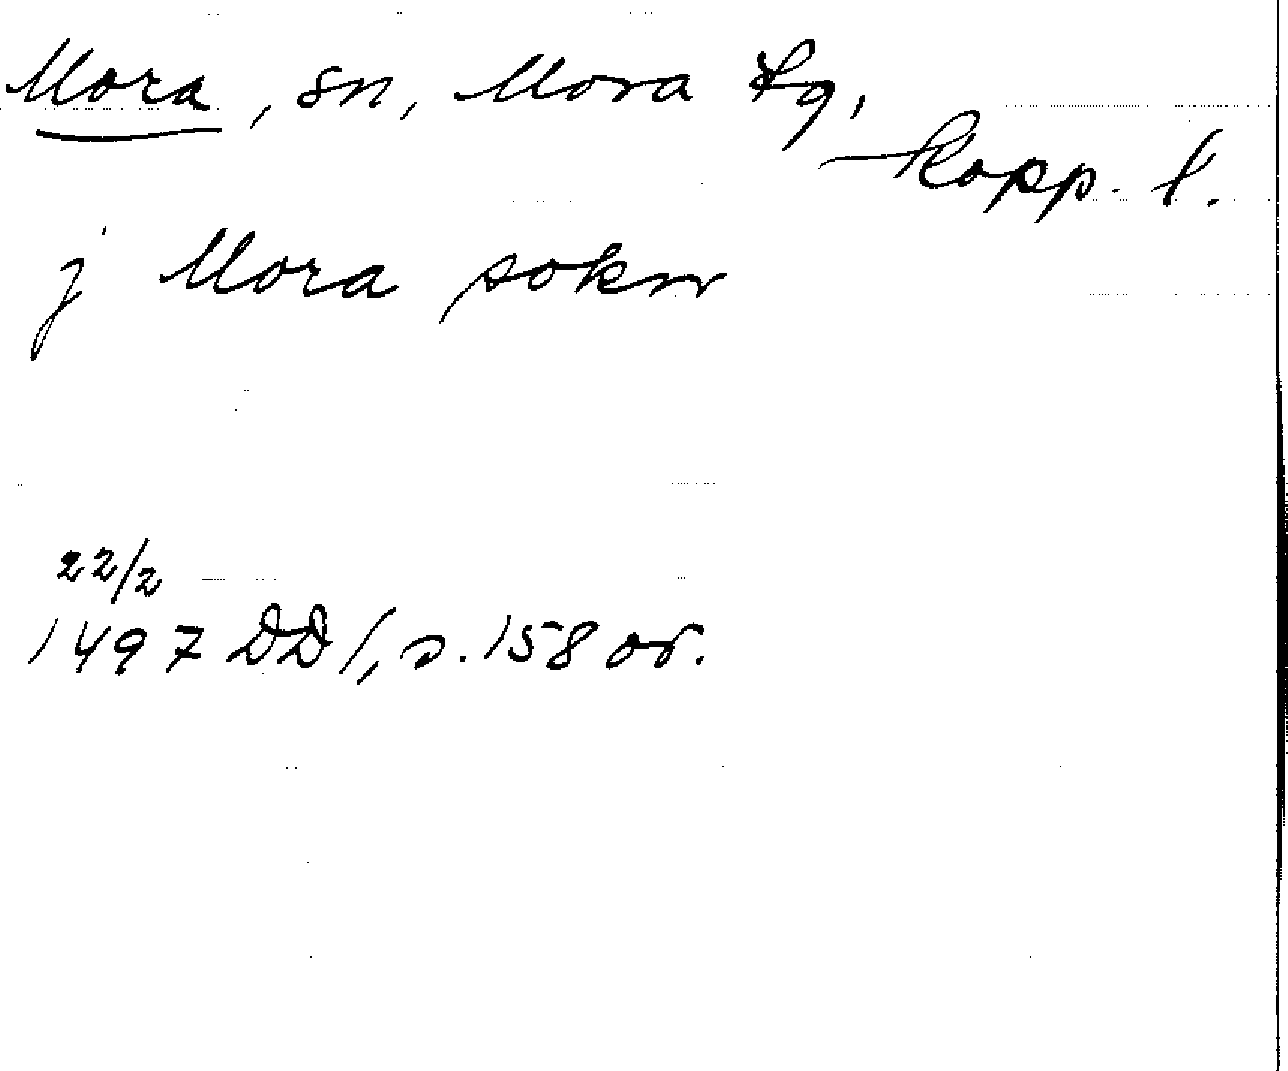 Mora, sn, Mora tg,
Kopp. l.
j Mora sokn
22/2
1497 DD 1, s. 158 or.